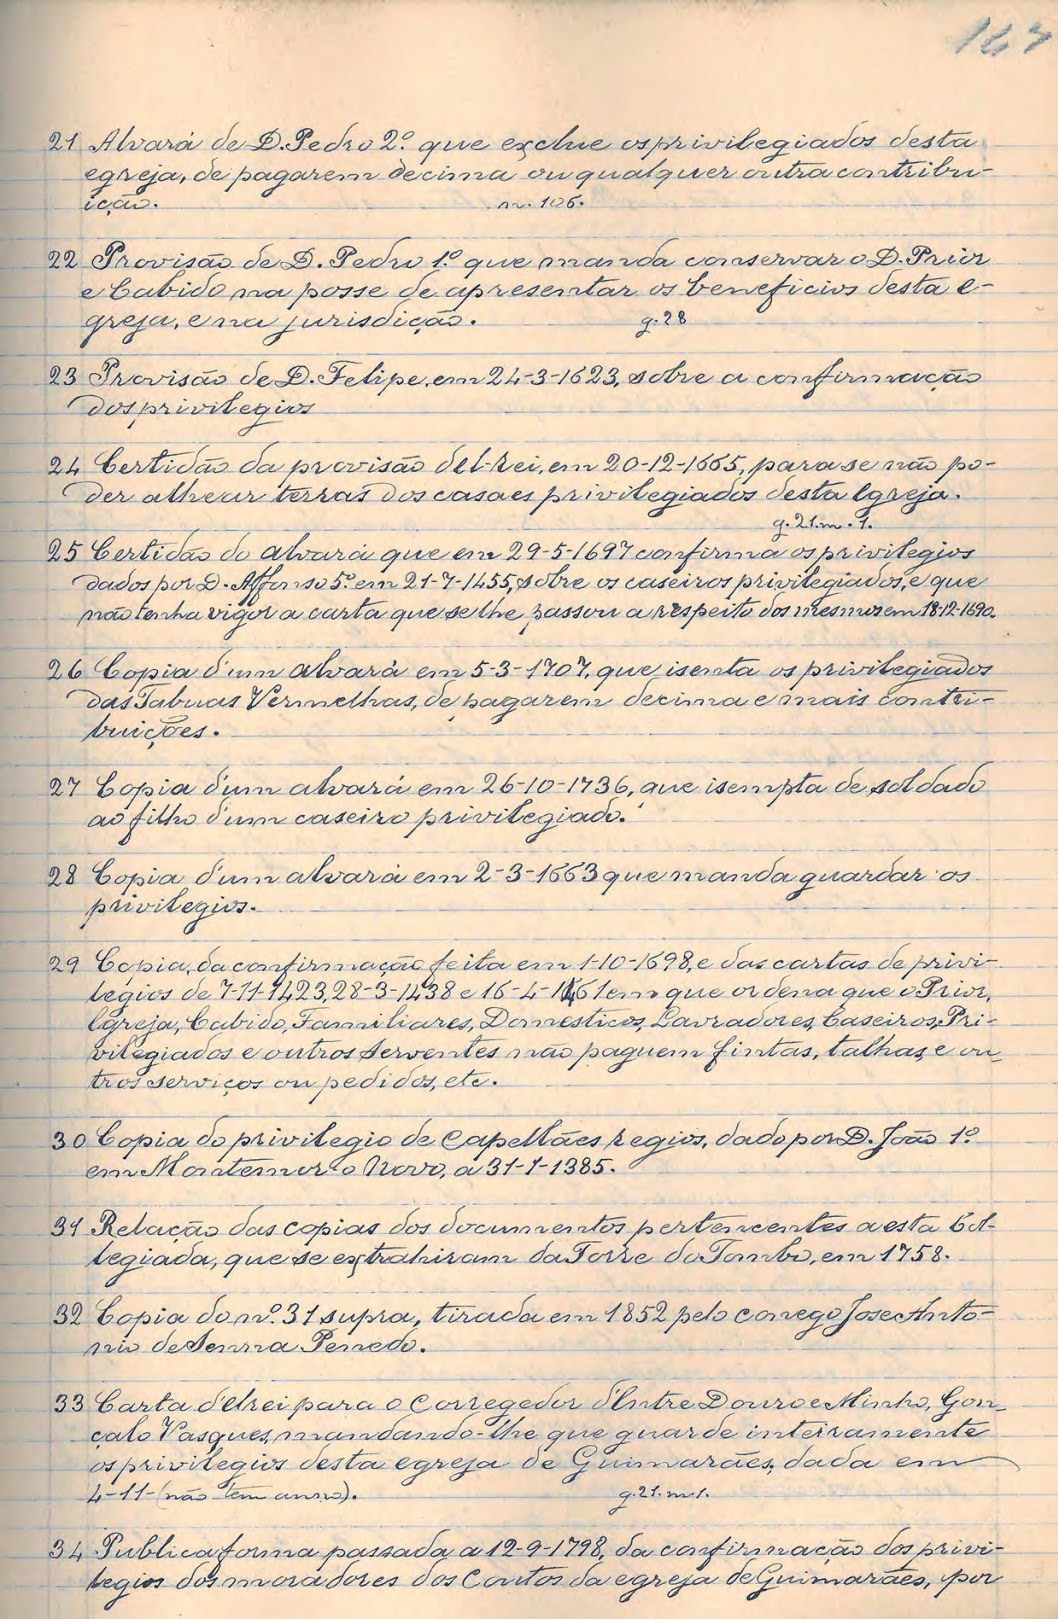 167
21 Alvará de D. Pedro 2.º que exclue os privilegiados desta
egreja, de pagarem decima ou qualquer outra contribu-
ição. n. 106.
22 Provisão de D. Pedro 1.º que manda conservar o D. Prior
e Cabido na posse de apresentar os beneficios desta e-
greja, e na jurisdição. g. 28
23 Provisão de D. Felipe, em 24-3-1623, sobre a confirmação
dos privilegios
24 Certidão da provisão del-rei, em 20-12-1665, para se não po-
der alhear terras dos casaes privilegiados desta Egreja.
g. 21. m. 1.
25 Certidão do alvará que em 29-5-1697 confirma os privilegios
dados por D. Affonso 5.º em 21-7-1455, sobre os caseiros privilegiados, e que
não tenha vigor a carta que se lhe passou a respeito dos mesmos em 18-12-1690.
26 Copia d'um alvará em 5-3-1707, que isenta os privilegiados
das Tabuas Vermelhas, de pagarem decima e mais contri-
buições.
27 Copia d'um alvará em 26-10-1736, que isempta de soldado
ao filho d'um caseiro privilegiado.
28 Copia d'um alvará em 2-3-1663 que manda guardar os
privilegios.
29 Copia, da confirmação feita em 1-10-1698, e das cartas de privi-
legios de 7-11-1423, 28-3-1438 e 16-4-1461 em que ordena que o Prior,
Egreja, Cabido, Familiares, Domesticos, Lavradores, Caseiros, Pri-
vilegiados e outros serventes não paguem fintas, talhas, e ou-
tros serviços ou pedidos, etc.
30 Copia do privilegio de Capellães regios, dado por D. João 1.º
em Montemor-o Novo, a 31-1-1385.
31 Relação das copias dos documentos pertencentes a esta Col-
legiada, que se extrahiram da Torre do Tombo, em 1758.
32 Copia do n.º 31 supra, tirada em 1852 pelo conego Jose Anto-
nio de Senna Penedo.
33 Carta d'elrei para o Corregedor d'Entre Douro e Minho, Gon-
çalo Vasques, mandando-lhe que guarde inteiramente
os privilegios desta egreja de Guimarães, dada em
4-11-(não tem anno). g. 21. m. 1.
34 Publica forma passada a 12-9-1798, da confirmação dos privi-
legios dos moradores dos Coutos da egreja de Guimarães, por